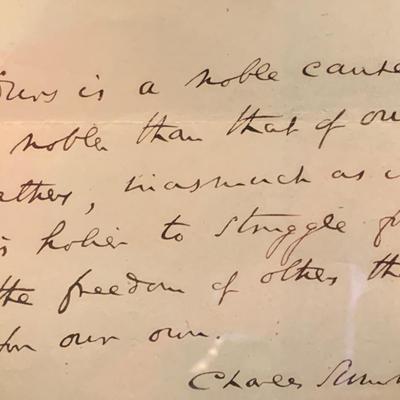 Ours is a noble cause
nobler than that of our
athers, inasmuch as i
is holier to struggle f
the freedom of others tha
for our own.
Charles Sumn